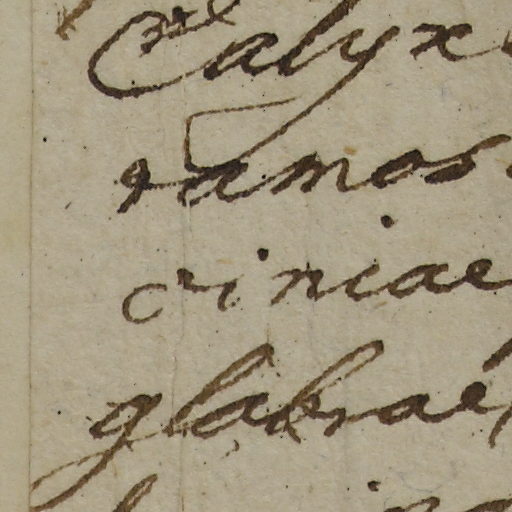 Calyx
ramos
ciniae
glabrae